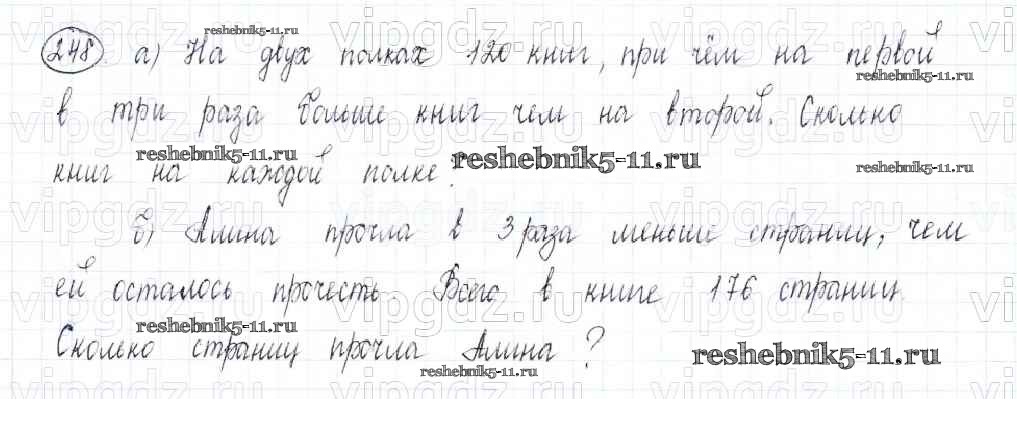 reshebnik5-11.ru
248 а) На двух полках 120 книг, при чём на первой
reshebnik5-11.ru
в три раза больше книг чем на второй. Сколько
reshebnik5-11.ru reshebnik5-11.ru reshebnik5-11.ru
книг на каждой полке.
vipgdz.ru vipgdz.ru vipgdz.ru
б) Алина прочла в 3 раза меньше страниц, чем
ей осталось прочесть. Всего в книге 176 страниц.
reshebnik5-11.ru
Сколько страниц прочла Алина?
reshebnik5-11.ru reshebnik5-11.ru